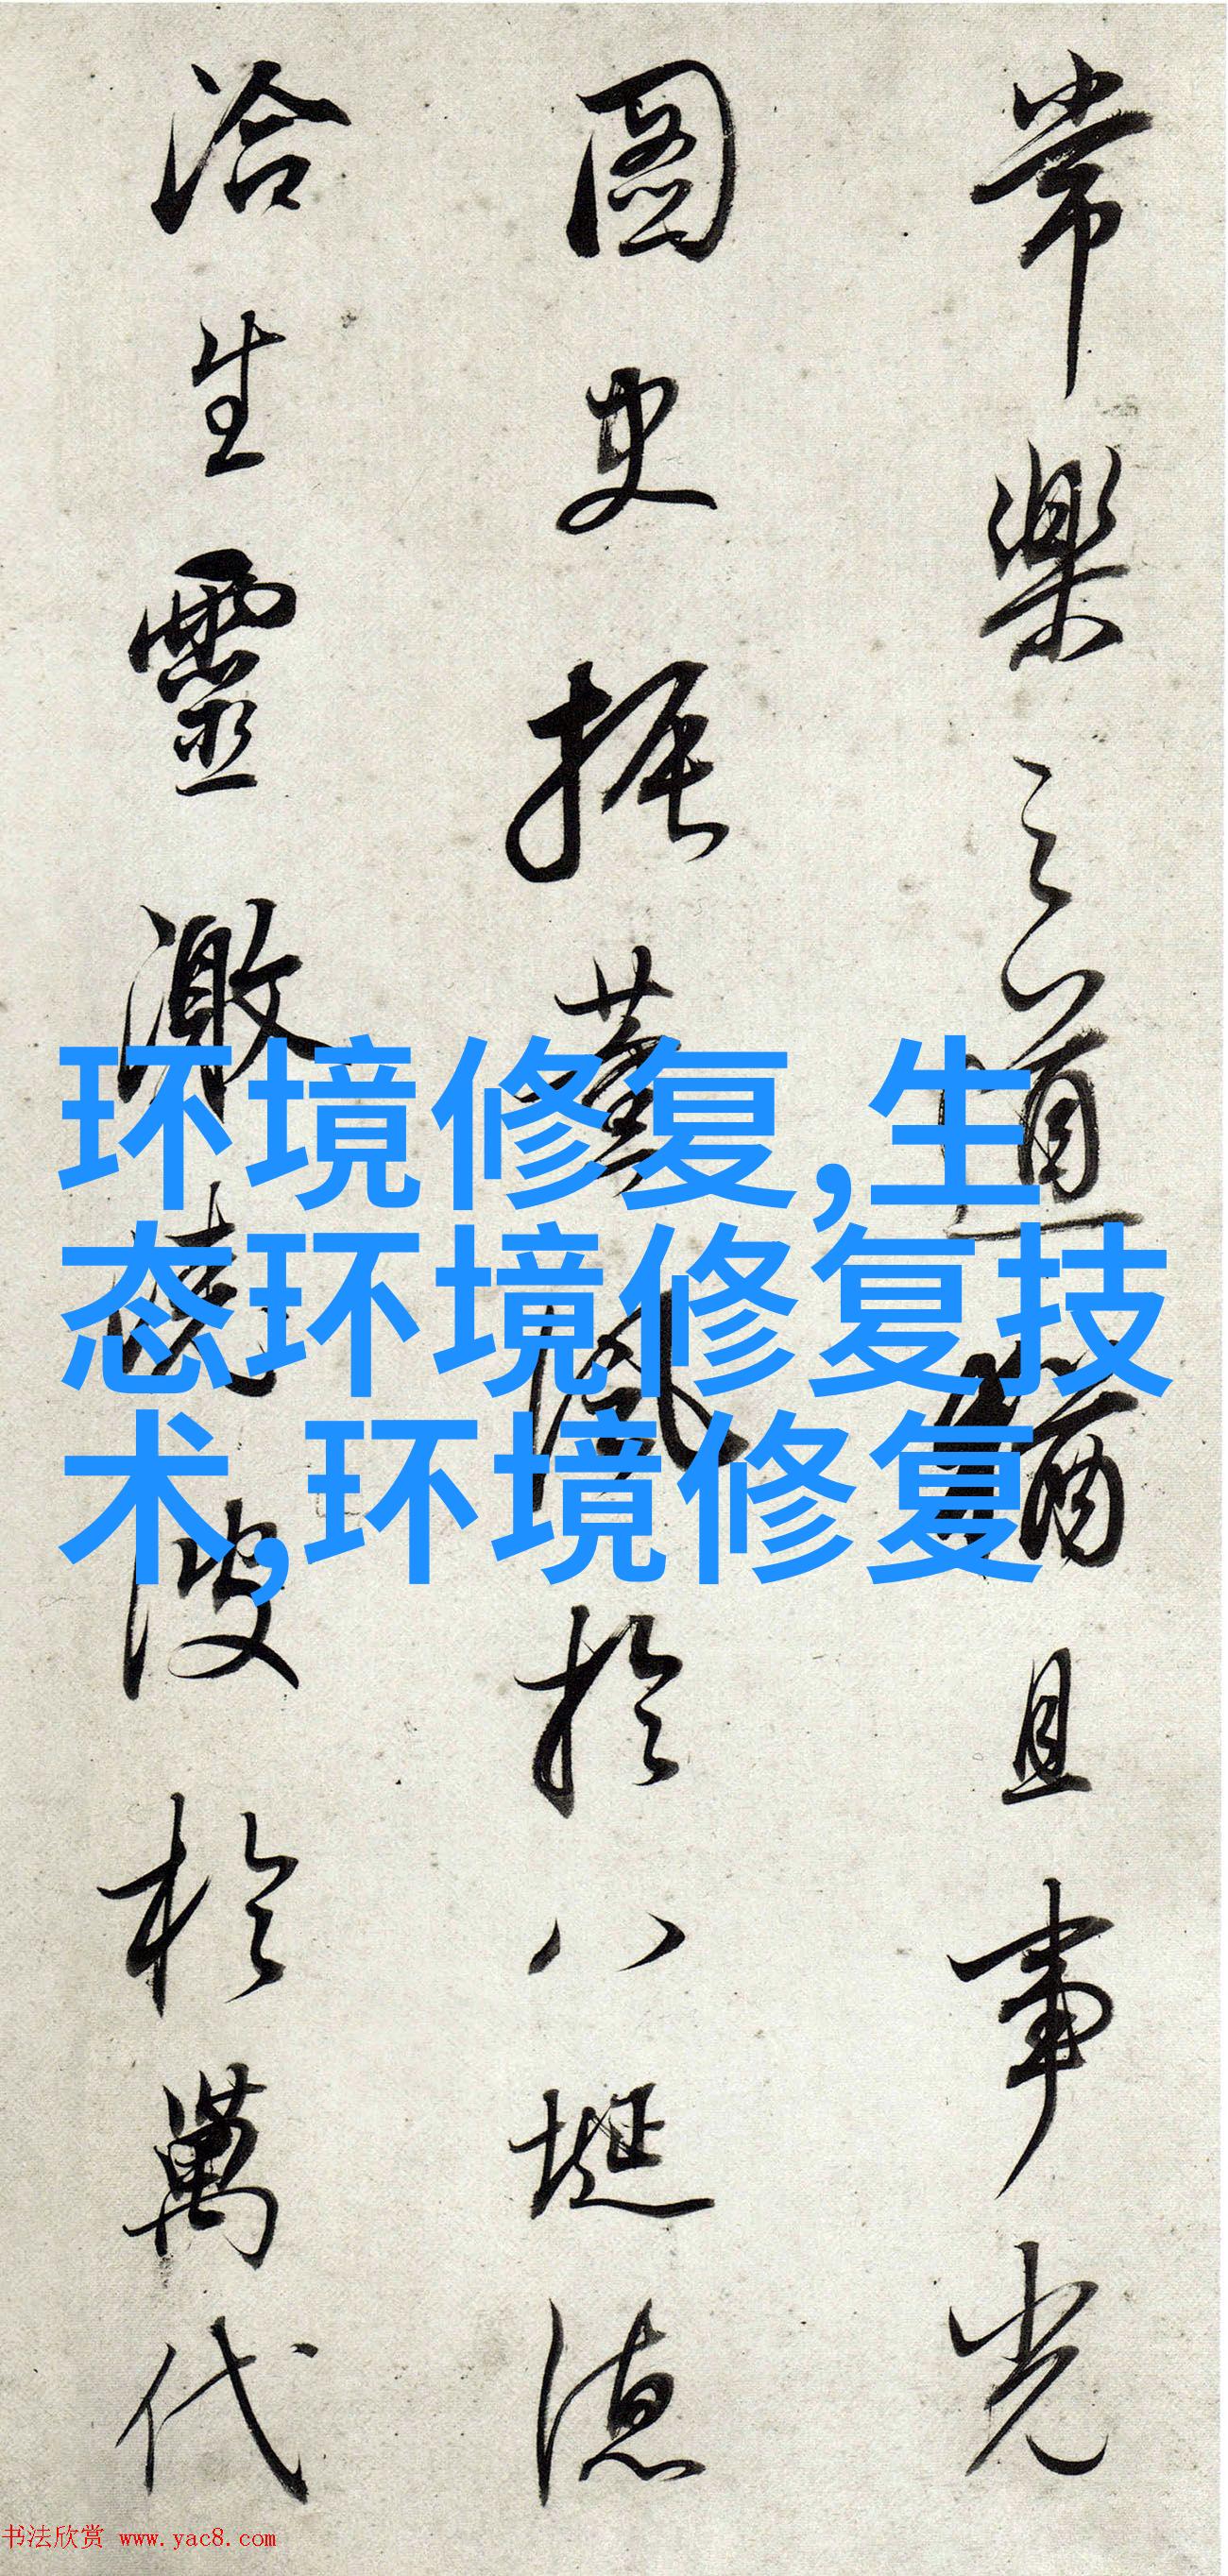 常樂之道著且事光
圖史振薰風於八埏德
洽生靈激堯波於萬代
环境修复,生
态环境修复技
术,环境修复
书法欣赏 www.yac8.com